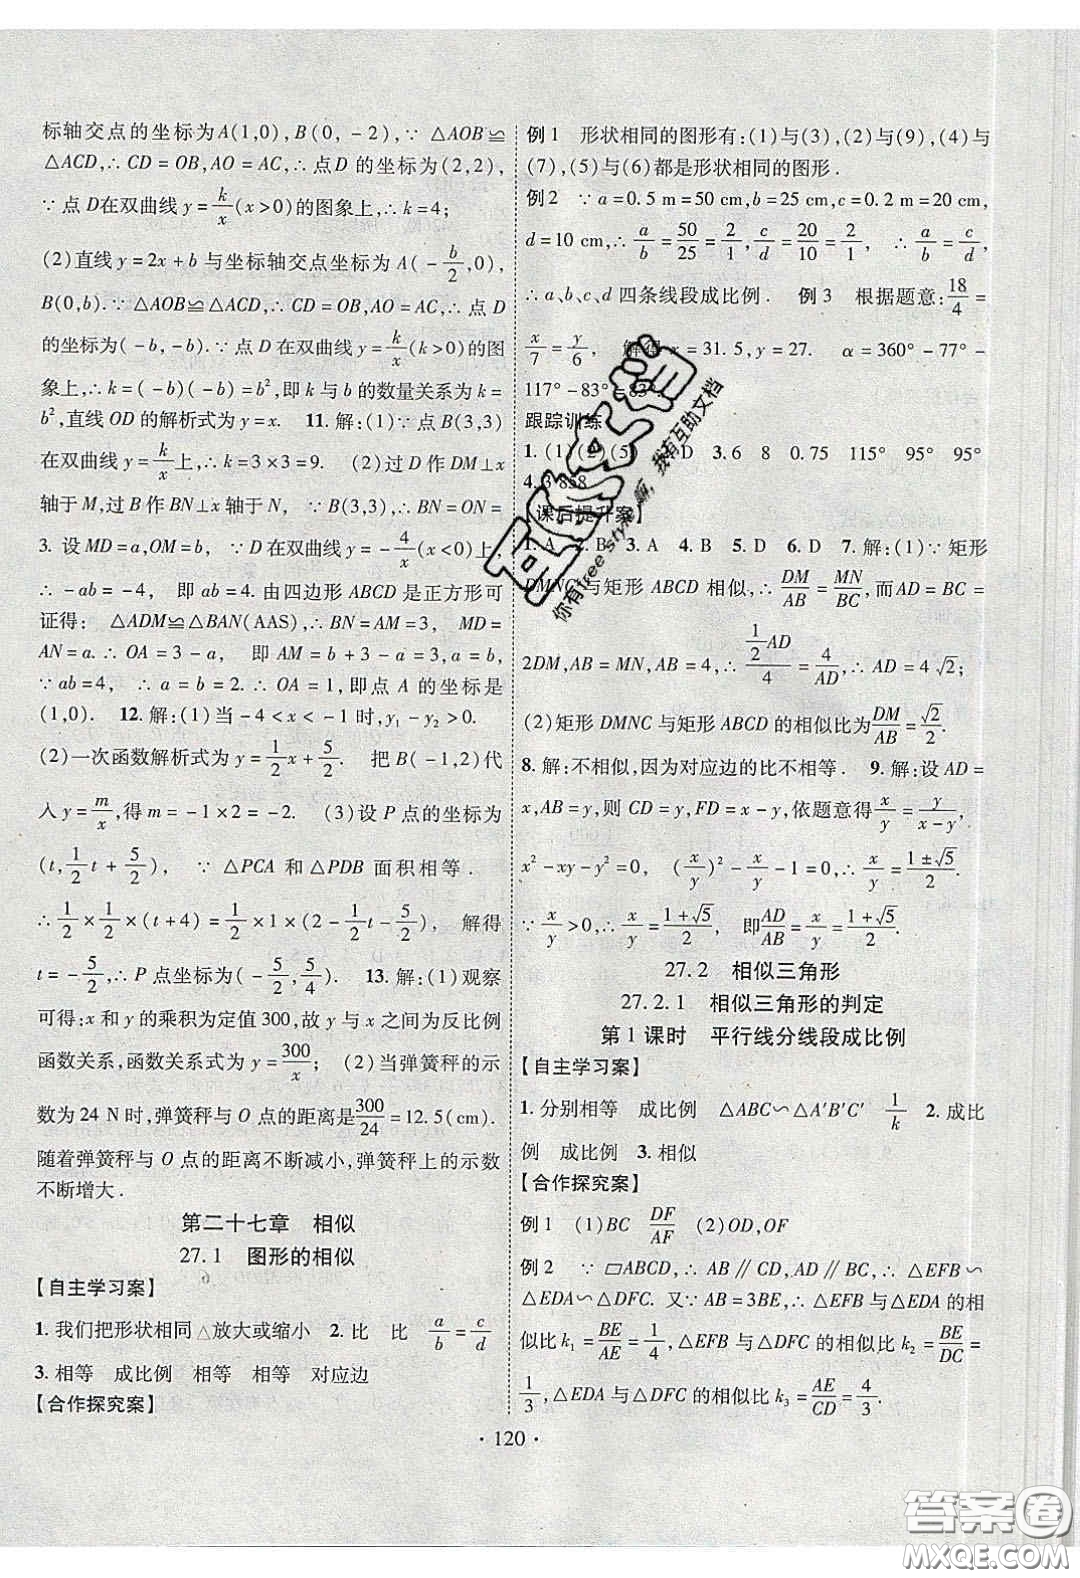 标轴交点的坐标为A(1,0),B(0,-2),∵△AOB≌
△ACD,∴CD=OB,AO=AC,∴点D的坐标为(2,2),
∵点D在双曲线y=k/x(x>0)的图象上,∴k=4;
(2)直线y=2x+b与坐标轴交点坐标为A(-b/2,0),
B(0,b).∵△AOB≌△ACD,∴CD=OB,AO=AC,∴点D
的坐标为(-b,-b).∵点D在双曲线y=k/x(k>0)的图
象上,∴k=(-b)(-b)=b²,即k与b的数量关系为k=
b²,直线OD的解析式为y=x. 11.解:(1)∵点B(3,3)
在双曲线y=k/x上,∴k=3×3=9. (2)过D作DM⊥x
轴于M,过B作BN⊥x轴于N, ∵B(3,3),∴BN=ON=
3.设MD=a,OM=b, ∵D在双曲线y=-4/x(x<0)上,
∴-ab=-4, 即ab=4.由四边形ABCD是正方形可
证得: △ADM≌△BAN(AAS),∴BN=AM=3, MD=
AN=a.∴OA=3-a, 即AM=b+3-a=3,a=b,
∵ab=4, ∴a=b=2.∴OA=1,即点A的坐标是
(1,0). 12.解:(1)当-4<x<-1时,y₁-y₂>0.
(2)一次函数解析式为y=1/2x+5/2. 把B(-1,2)代
入y=m/x,得m=-1×2=-2. (3)设P点的坐标为
(t,1/2t+5/2), ∵△PCA和△PDB面积相等.
∴1/2×1/2×(t+4)=1/2×1×(2-1/2t-5/2), 解得
t=-5/2,∴P点坐标为(-5/2,5/4). 13.解:(1)观察
可得:x和y的乘积为定值300,故y与x成反比例
函数关系,函数关系式为y=300/x; (2)当弹簧秤的示
数为24 N时,弹簧秤与O点的距离是300/24=12.5(cm).
随着弹簧秤与O点的距离不断减小,弹簧秤上的示数
不断增大.
第二十七章 相似
27.1 图形的相似
【自主学习案】
1.我们把形状相同 放大或缩小 2.比 比 a/b=c/d
3.相等 成比例 相等 相等 对应边
【合作探究案】
例1 形状相同的图形有:(1)与(3),(2)与(9),(4)与
(7),(5)与(6)都是形状相同的图形.
例2 ∵a=0.5 m=50 cm,b=25 cm,c=0.2 m=20 cm,
d=10 cm,∴a/b=50/25=2/1,c/d=20/10=2/1, ∴a/b=c/d,
∴a、b、c、d四条线段成比例. 例3 根据题意:18/4=
x/7=y/6, 解得x=31.5,y=27. α=360°-77°-
117°-83°=83°.
跟踪训练
1.(1)(2)(5) D 3.6 8 0.75 115° 95° 95°
4.3 858
课后提升案】
1.A 2.B 3.A 4.B 5.D 6.D 7.解:(1)∵矩形
DMNC与矩形ABCD相似,∴DM/AB=MN/BC,而AD=
2DM,AB=MN,AB=4,∴(1/2AD)/4=4/AD,∴AD=4√2;
(2)矩形DMNC与矩形ABCD的相似比为DM/AB=√2/2.
8.解:不相似,因为对应边的比不相等. 9.解:设AD=
x,AB=y,则CD=y,FD=x-y,依题意得x/y=y/(x-y),
x²-xy-y²=0, (x/y)²-x/y-1=0,∴x/y=(1±√5)/2.
∵x/y>0,∴x/y=(1+√5)/2, 即AD/AB=x/y=(1+√5)/2.
27.2 相似三角形
27.2.1 相似三角形的判定
第1课时 平行线分线段成比例
【自主学习案】
1.分别相等 成比例 △ABC∽△A′B′C′ 1/k 2.成比
例 成比例 3.相似
【合作探究案】
例1 (1)BC DF/AF (2)OD,OF
例2 ∵▱ABCD,∴AB∥CD,AD∥BC,∴△EFB∽
△EDA∽△DFC.又∵AB=3BE,∴△EFB与△EDA的相
似比k₁=BE/AE=1/4,△EFB与△DFC的相似比k₂=BE/DC=
1/3,△EDA与△DFC的相似比k₃=AE/CD=4/3.
·120·
你有free style嘛,我有互助文档
答案圈
MXQE.COM